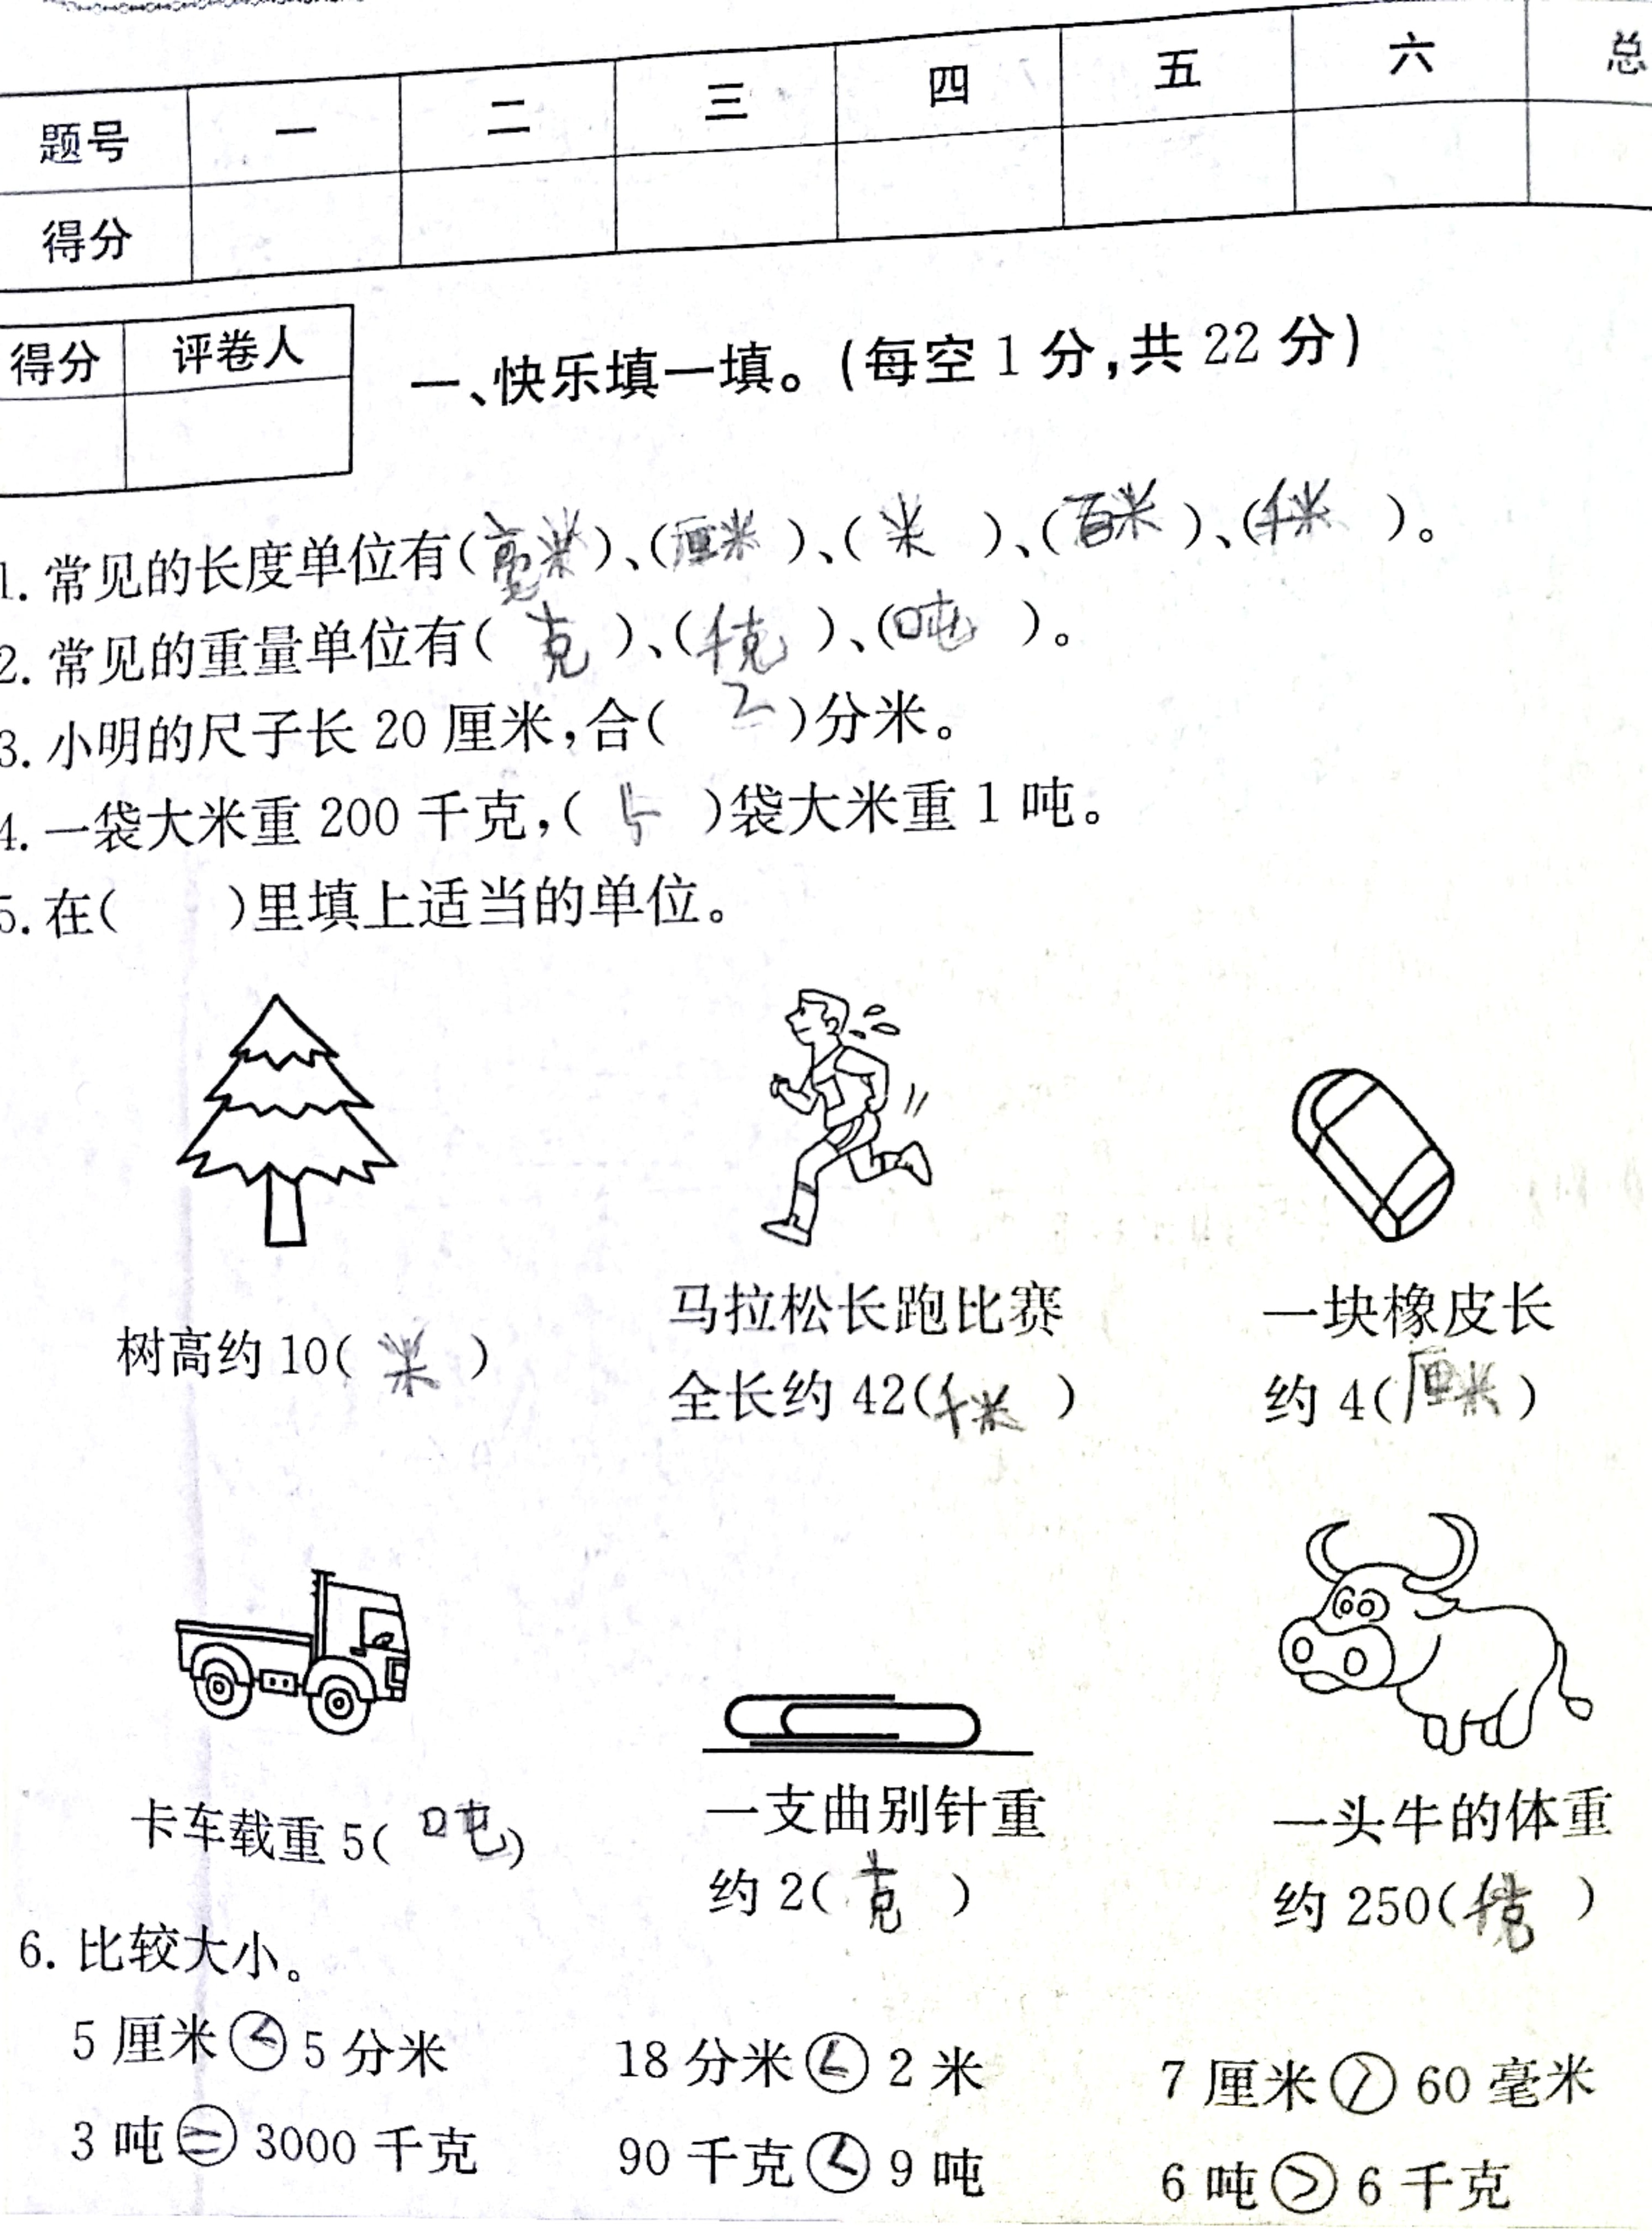 题号 一 二 三 四 五 六 总
得分
得分 评卷人
一、快乐填一填。(每空1分,共22分)
1. 常见的长度单位有(毫米)、(厘米)、(米)、(百米)、(千米)。
2. 常见的重量单位有(克)、(千克)、(吨)。
3. 小明的尺子长20厘米,合(2)分米。
4. 一袋大米重200千克,(5)袋大米重1吨。
5. 在( )里填上适当的单位。
树高约10(米)
马拉松长跑比赛
全长约42(千米)
一块橡皮长
约4(厘米)
卡车载重5(吨)
一支曲别针重
约2(克)
一头牛的体重
约250(千克)
6. 比较大小。
5厘米<5分米 18分米<2米 7厘米>60毫米
3吨=3000千克 90千克<9吨 6吨>6千克